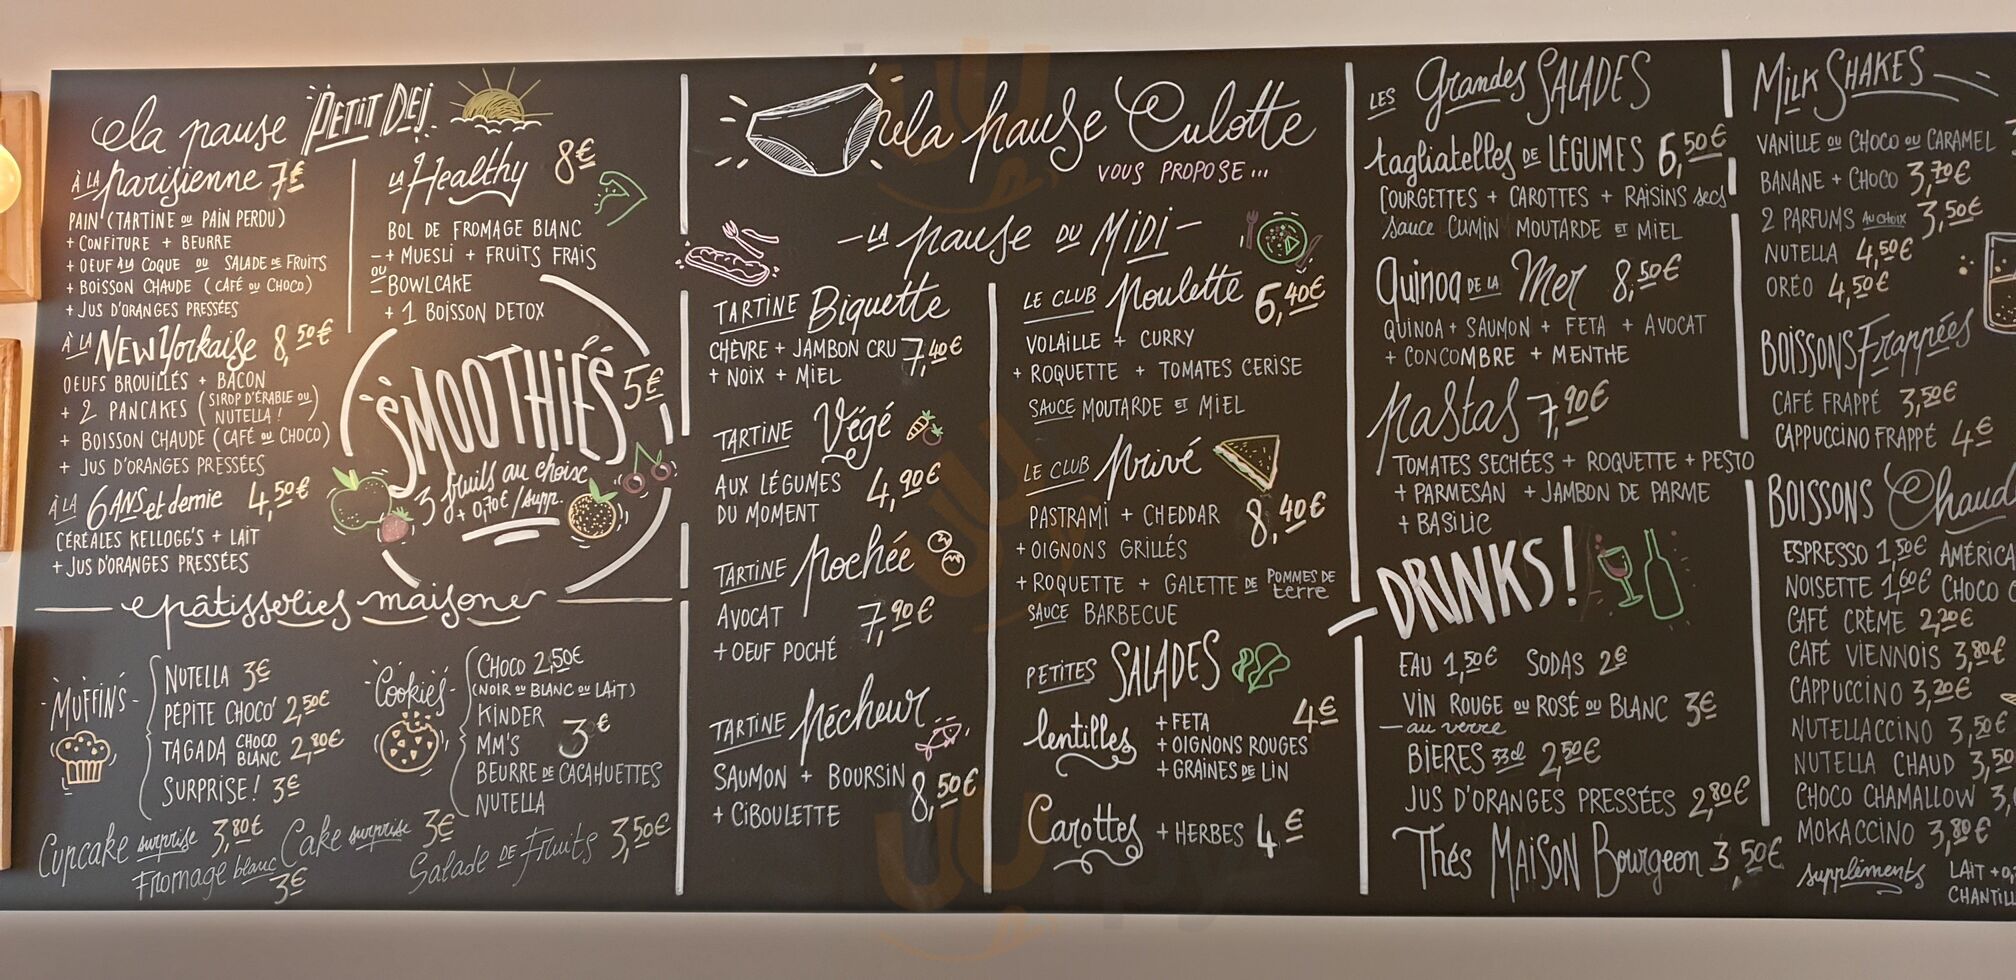 la pause PETIT DEJ
À LA parisienne 7€
PAIN (TARTINE OU PAIN PERDU)
+ CONFITURE + BEURRE
+ OEUF À LA COQUE OU SALADE DE FRUITS
+ BOISSON CHAUDE (CAFÉ OU CHOCO)
+ JUS D'ORANGES PRESSÉES
À LA NEW Yorkaise 8,50€
OEUFS BROUILLÉS + BACON
+ 2 PANCAKES (SIROP D'ÉRABLE OU NUTELLA!)
+ BOISSON CHAUDE (CAFÉ OU CHOCO)
+ JUS D'ORANGES PRESSÉES
À LA 6 ANS et demie 4,50€
CÉRÉALES KELLOGG'S + LAIT
+ JUS D'ORANGES PRESSÉES
LA Healthy 8€
BOL DE FROMAGE BLANC
+ MUESLI + FRUITS FRAIS
OU
BOWLCAKE
+ 1 BOISSON DETOX
SMOOTHIES 5€
3 fruits au choix
+ 0,70€/supp.
pâtisseries maison
MUFFINS
NUTELLA 3€
PÉPITE CHOCO' 2,50€
TAGADA CHOCO BLANC 2,80€
SURPRISE! 3€
Cookies
CHOCO 2,50€
(NOIR OU BLANC OU LAIT)
KINDER
MM'S 3€
BEURRE DE CACAHUETTES
NUTELLA
Cupcake surprise 3,80€ Cake surprise 3€
Fromage blanc 3€
Salade DE Fruits 3,50€
la pause Culotte
VOUS PROPOSE...
- LA pause DU MIDI -
TARTINE Biquette
CHÈVRE + JAMBON CRU 7,40€
+ NOIX + MIEL
TARTINE Végé
AUX LÉGUMES 4,90€
DU MOMENT
TARTINE pochée
AVOCAT 7,90€
+ OEUF POCHÉ
TARTINE pécheur
SAUMON + BOURSIN 8,50€
+ CIBOULETTE
LE CLUB poulette 6,40€
VOLAILLE + CURRY
+ ROQUETTE + TOMATES CERISE
SAUCE MOUTARDE ET MIEL
LE CLUB privé
PASTRAMI + CHEDDAR 8,40€
+ OIGNONS GRILLÉS
+ ROQUETTE + GALETTE DE POMMES DE terre
SAUCE BARBECUE
PETITES SALADES
lentilles 4€
+ FETA
+ OIGNONS ROUGES
+ GRAINES DE LIN
Carottes + HERBES 4€
LES Grandes SALADES
tagliatelles DE LÉGUMES 6,50€
COURGETTES + CAROTTES + RAISINS secs
Sauce CUMIN MOUTARDE ET MIEL
Quinoa DE LA Mer 8,50€
QUINOA + SAUMON + FETA + AVOCAT
+ CONCOMBRE + MENTHE
pastas 7,90€
TOMATES SECHÉES + ROQUETTE + PESTO
+ PARMESAN + JAMBON DE PARME
+ BASILIC
DRINKS!
EAU 1,50€ SODAS 2€
VIN ROUGE OU ROSÉ OU BLANC 3€
- au verre
BIÈRES 33cl 2,50€
JUS D'ORANGES PRESSÉES 2,80€
Thés MAISON Bourgeon 3,50€
MILK SHAKES
VANILLE OU CHOCO OU CARAMEL
BANANE + CHOCO 3,70€
2 PARFUMS AU CHOIX 3,50€
NUTELLA 4,50€
ORÉO 4,50€
BOISSONS Frappées
CAFÉ FRAPPÉ 3,50€
CAPPUCCINO FRAPPÉ 4€
BOISSONS Chaud
ESPRESSO 1,50€ AMÉRICA
NOISETTE 1,60€ CHOCO
CAFÉ CRÈME 2,20€
CAFÉ VIENNOIS 3,80€
CAPPUCCINO 3,20€
NUTELLACCINO 3,50€
NUTELLA CHAUD 3,50
CHOCO CHAMALLOW 3,
MOKACCINO 3,80€
suppléments LAIT +0,
CHANTILL